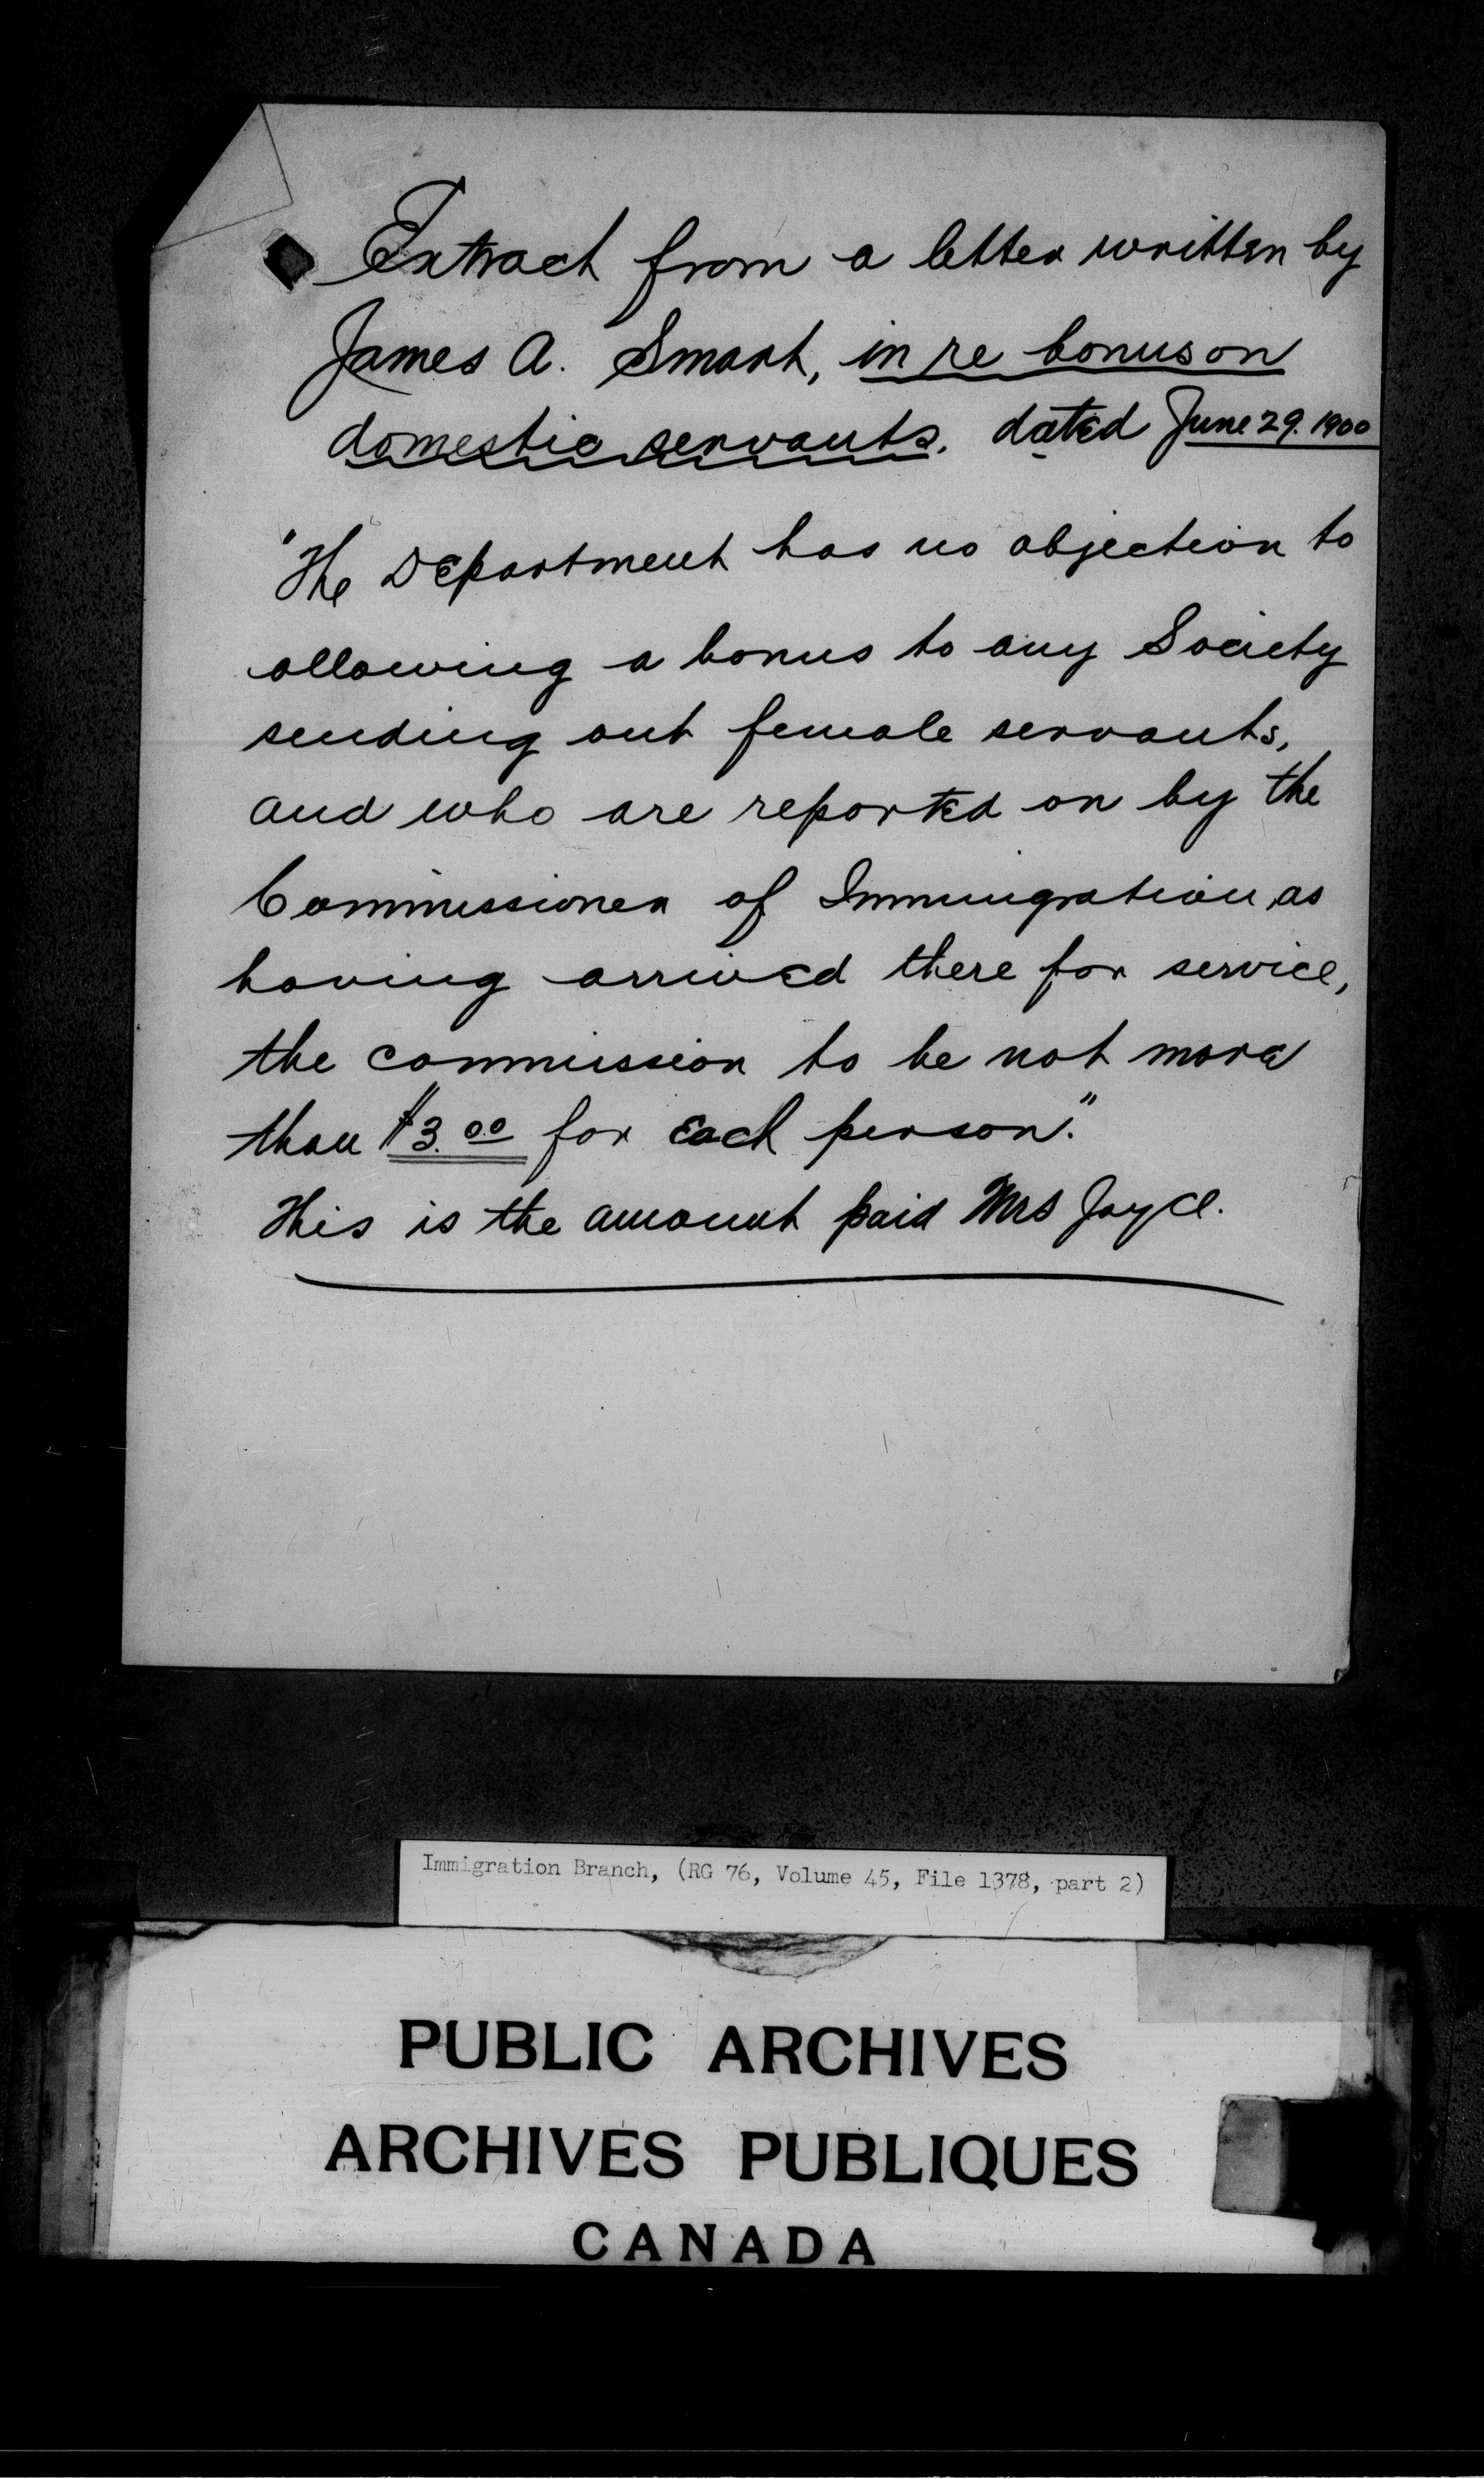 Extract from a letter written by
James A. Smart, in re bonus on
domestic servants, dated June 29. 1900
"The Department has no objection to
allowing a bonus to any Society
sending out female servants,
and who are reported on by the
Commissioner of Immigration, as
having arrived there for service,
the commission to be not more
than $3.00 for each person."
This is the amount paid Mrs Joyce.
Immigration Branch, (RG 76, Volume 45, File 1378, part 2)
PUBLIC ARCHIVES
ARCHIVES PUBLIQUES
CANADA